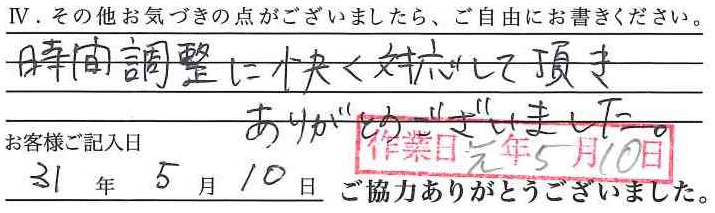 Ⅳ．その他お気づきの点がございましたら、ご自由にお書きください。
時間調整に快く対応して頂き
ありがとうございました。
お客様ご記入日
作業日元年5月10日
31年5月10日
ご協力ありがとうございました。